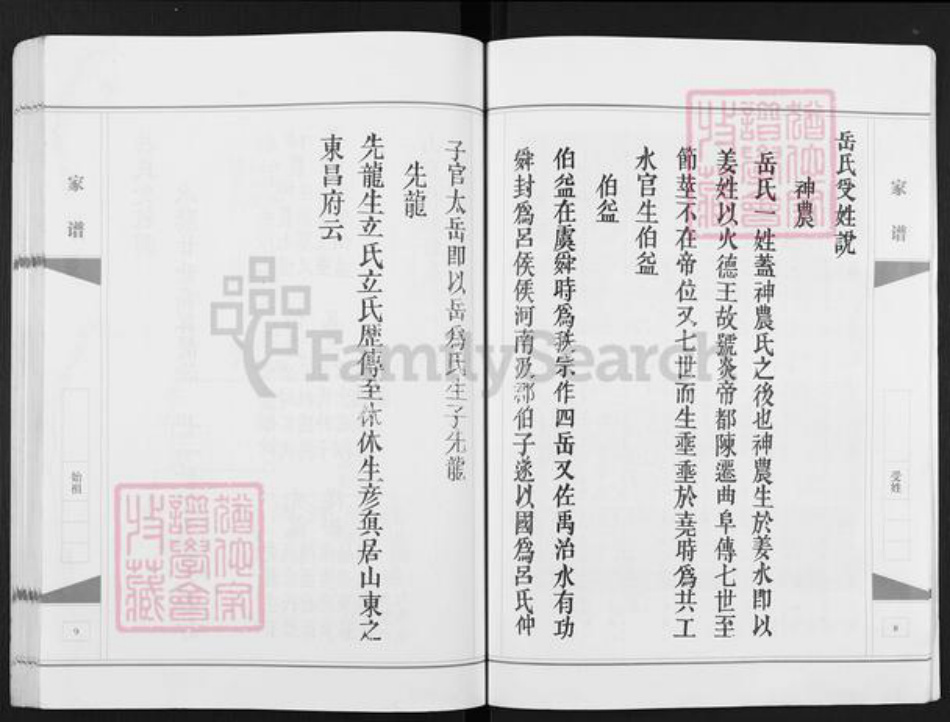 岳氏受姓說
神農
岳氏一姓蓋神農氏之後也神農生於姜水即以
姜姓以火德王故號炎帝都陳遷曲阜傳七世至
節莖不在帝位又七世而生垂垂於堯時為共工
水官生伯益
伯益
伯益在虞舜時為秩宗作四岳又佐禹治水有功
舜封為呂侯侯河南汲郡伯子遂以國為呂氏仲
子官太岳即以岳為氏生子先龍
先龍
先龍生立氏立氏歷傳至休休生彥真居山東之
東昌府云
家譜
受姓
8
家譜
始祖
9
FamilySearch